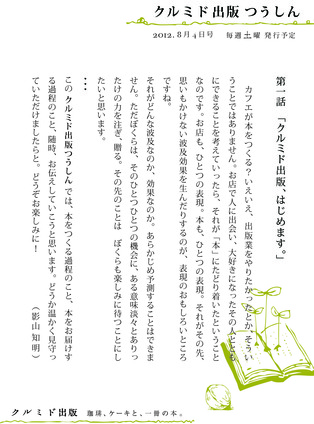 クルミド出版 つうしん
2012.8月4日号 毎週土曜 発行予定
第一話 「クルミド出版、はじめます。」
カフェが本をつくる?いえいえ、出版業をやりたかったとか、そうい
うことではありません。お店で人に出会い、大好きになったその人ととも
にできることを考えていったら、それが「本」にたどり着いたということ
なのです。お店も、ひとつの表現。本も、ひとつの表現。それがその先、
思いもかけない波及効果を生んだりするのが、表現のおもしろいところ
ですね。
それがどんな波及なのか、効果なのか。あらかじめ予測することはできま
せん。ただぼくらは、そのひとつひとつの機会に、ある意味淡々とありっ
たけの力を注ぎ、贈る。その先のことは ぼくらも楽しみに待つことにし
たいと思います。
・・・
この クルミド出版つうしん では、本をつくる過程のこと、本をお届けす
る過程のこと、随時、お伝えしていこうと思います。どうか温かく見守っ
ていただけましたらと。どうぞお楽しみに!
(影山 知明)
クルミド出版 珈琲、ケーキと、一冊の本。